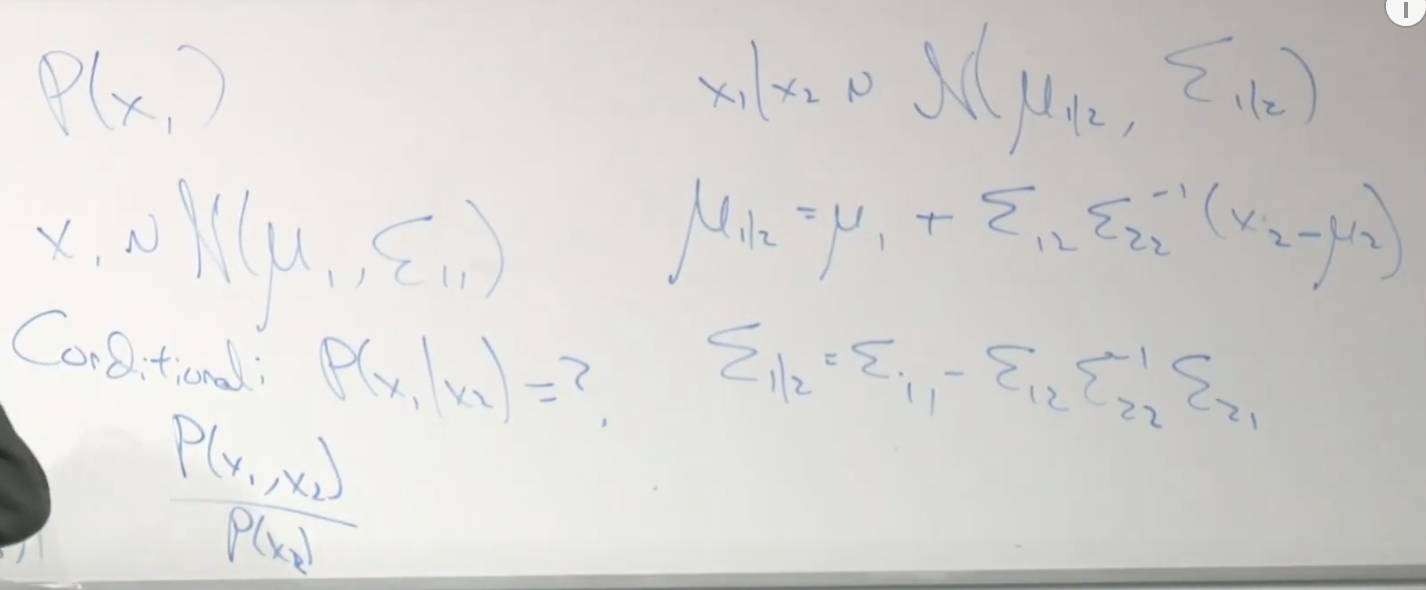 P(x₁)
x₁ ~ N(μ₁, Σ₁₁)
Conditional: P(x₁|x₂) = ?.
P(x₁, x₂)
P(x₂)
x₁|x₂ ~ N(μ₁|₂, Σ₁|₂)
μ₁|₂ = μ₁ + Σ₁₂ Σ₂₂⁻¹ (x₂ - μ₂)
Σ₁|₂ = Σ₁₁ - Σ₁₂ Σ₂₂⁻¹ Σ₂₁